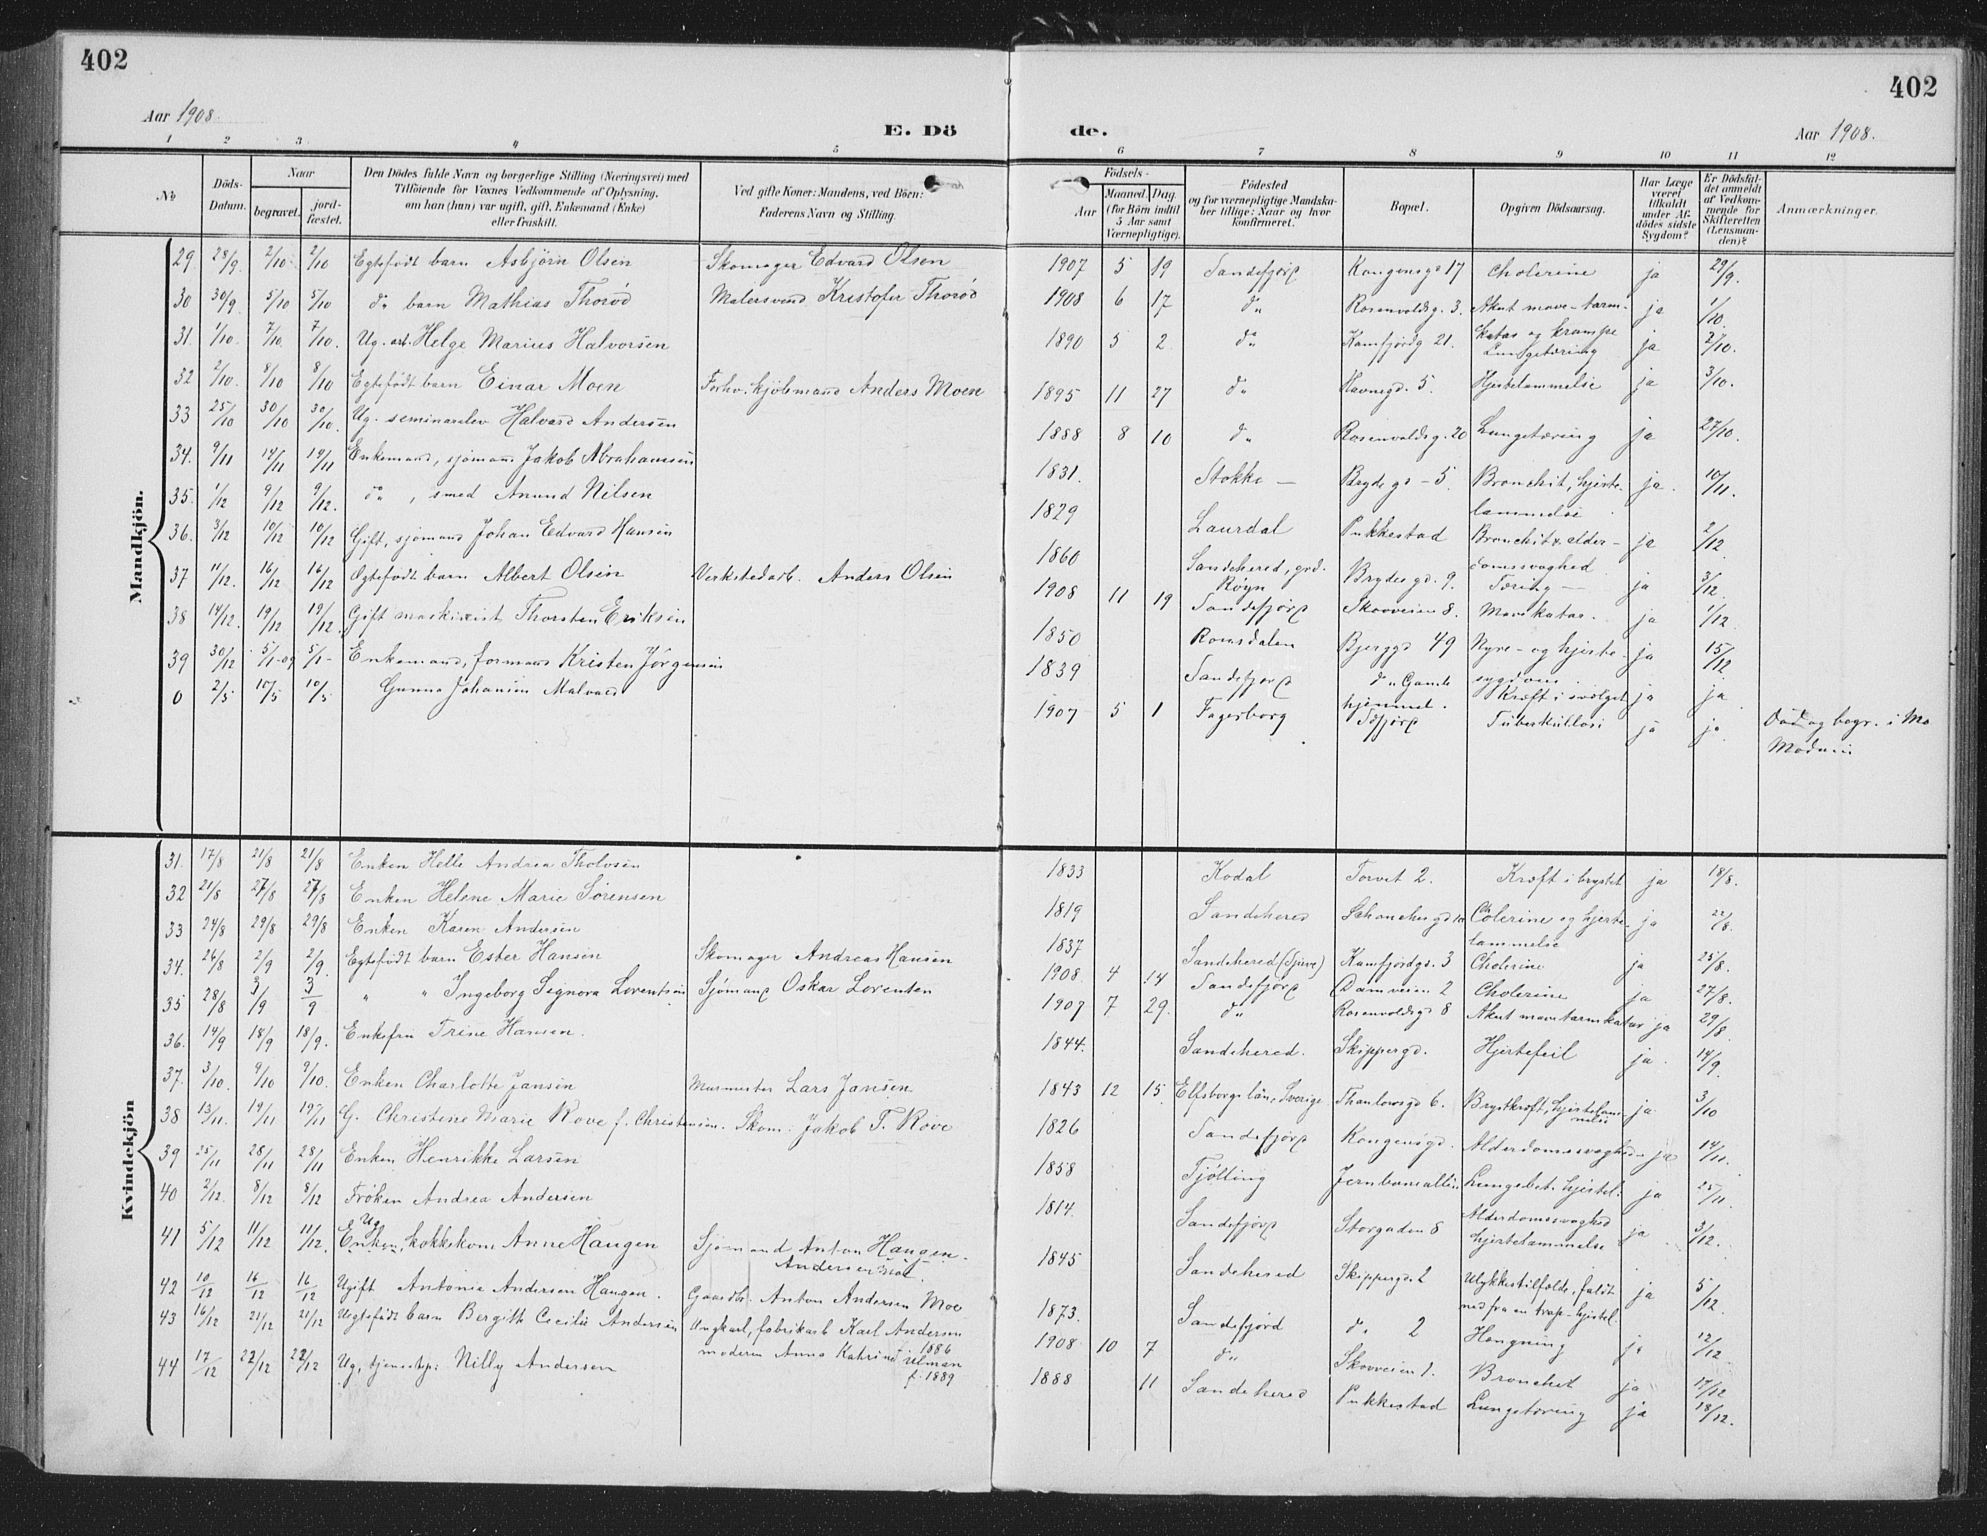 402
402
Aar 1908.
E. Dö
de.
Aar 1908.
1 2 3 4 5 6 7 8 9 10 11 12
No
Döds-Datum.
Naar
begravet.
jord-fæstet.
Den Dödes fulde Navn og borgerlige Stilling (Næringsvei) med
Tilföiende for Voxnes Vedkommende af Oplysning,
om han (hun) var ugift, gift, Enkemand (Enke)
eller fraskilt.
Ved gifte Koner: Mandens, ved Börn:
Faderens Navn og Stilling.
Födsels-
Aar
Maaned. Dag
(for Börn indtil
5 Aar samt
Værnepligtige).
Födested
og for værnepligtige Mandska-
ber tillige: Naar og hvor
konfirmeret.
Bopæl.
Opgiven Dödsaarsag.
Har Læge
været
tilkaldt
under Af-
dödes sidste
Sygdom?
Er Dödsfal-
det anmeldt
af Vedkom-
mende for
Skifteretten
(Lensman-
den)?
Anmærkninger.
Mandkjön.
29 28/9 2/10 2/10 Egtefödt barn Asbjörn Olsen Skomager Edvard Olsen 1907 5 19 Sandefjord Kongensgd 17 Cholerine ja 29/9.
30 30/9 5/10 5/10 do barn Mathias Thorød Malersvend Kristofer Thorød 1908 6 17 do Rosenvoldsg. 3. Akut mave-tarm- ja 1/10.
katar og krampe
31. 1/10. 7/10 7/10 Ug. arb. Helge Marius Halvorsen 1890 5 2 do Kamfjordg 21. Lungetæring ja 2/10.
32 2/10. 8/10 8/10 Egtefödt barn Einar Moen Forhv. kjöbmand Anders Moen 1895 11 27 do Havnegd. 5. Hjertelammelse ja 3/10.
33 25/10 30/10 30/10. Ug. seminarelev Halvard Andersen 1888 8 10 do Rosenvoldsg. 20 Lungetæring ja 27/10.
34. 9/11 14/11 14/11 Enkemand, sjömand Jakob Abrahamsen 1831. Stokke Brydegd - 5. Bronchit, hjerte- ja. 10/11.
lammelse
35. 1/12 9/12 9/12. do, smed Anund Nilsen 1829 Laurdal Pukkestad Bronchit & alder- ja 2/12
domssvaghed
36. 3/12 10/12 10/12 Gift, sjömand Johan Edvard Hansen 1860 Sandehered, grd. Brydesgd. 9. Tæring ja 3/12.
Røyn
37 11/12. 16/12 16/12 Egtefödt barn Albert Olsen Verkstedarb. Anders Olsen 1908 11 19 Sandefjord Skovveien 8. Mavekatar. ja 1/12.
38 14/12. 19/12 19/12. Gift maskinist Thorsten Eriksen 1850 Romsdalen Bjerggd 49 Nyre- og hjerte- ja 15/12
sygdom.
39 30/12 5/1-09 5/1- Enkemand, formand Kristen Jörgensen 1839 Sandefjord do Gamle Kræft i svælget ja ja
hjemmet.
0 2/5 10/5 10/5 Gunno Johansen 1907 5 1 Fagerborg Tuberkulosi ja ja. Död og begr. i
Kvindekjön
31. 17/8 21/8 21/8 Enken Helle Andrea Tholvsen 1833 Kodal Torvet 2. Kræft i brystet ja 18/8.
32 21/8 27/8 27/8 Enken Helene Marie Sørensen 1819 Sandehered Cholerine og hjerte- ja 22/8.
lammelse
33 24/8 29/8 29/8 Enken Karen Andersen 1837 Sandehered Kamfjordgd. 3 Cholerine ja 25/8.
34. 26/8 2/9 2/9. Egtefödt barn Ester Hansen Skomager Andreas Hansen 1908 4 14 Sandefjord Damveien 2 Cholerine ja 27/8.
35 28/8 3/9 3/9 " " Ingeborg Signora Lorentsen Sjömand Oskar Lorenten 1907 7 29. do Rosenvoldsgd 8 Akut mavetarmkatar ja 29/8
36. 14/9 18/9 18/9. Enkefru Trine Hansen. 1844. Sandehered. Skippergd. Hjertefeil ja. 14/9
37. 3/10. 9/10 9/10. Enken Charlotte Jansen Murmester Lars Jansen 1843 12 15. Elfsborgs län, Sverige Thaulowsgd 6. Brystkræft, hjertelam- ja 3/10
melse
38 13/11. 19/11 19/11 G. Christine Marie Rove f. Christensen. Skom. Jakob T. Rove 1826 Sandefjord Kongensgd. Alderdomssvaghed ja 14/11.
39 25/11 28/11 28/11 Enken Henrikke Larsen 1858 Tjölling Jernbanealléen Lungebet. hjertel. ja 25/11.
40 2/12. 8/12 8/12 Fröken Andrea Andersen 1814. Sandefjord Storgaden 8 Alderdomssvaghed ja. 3/12.
hjertelammelse
Ug
41 5/12 11/12 11/12. Enken, kokkekone Anne Haugen Sjömand Anton Haugen. 1845 Sandehered Skippergd. 2 Ulykkestilfælde, faldt ja 5/12.
Andersen Moe ned fra en trap-hjertel.
42 10/12 16/12 16/12 Ugift Antonie Andersen Haugen. Gaardbr. Anton Andersen Moe 1873. Sandefjord do 2 Hængning ja 12/12
43 16/12 21/12 21/12 Uegtefödt barn Bergitte Cecilie Andersen Ungkarl, fabrikarb Karl Andersen 1908 10 7 do Skovveien 1. Bronchit ja 17/12
f. 1886
moderen Anna Katrine Ulman
f. 1889
44 17/12 22/12 22/12 Ug, tjenestep: Nilly Andersen 1888 11 Sandehered Pukkestad Lungetæring ja 18/12.